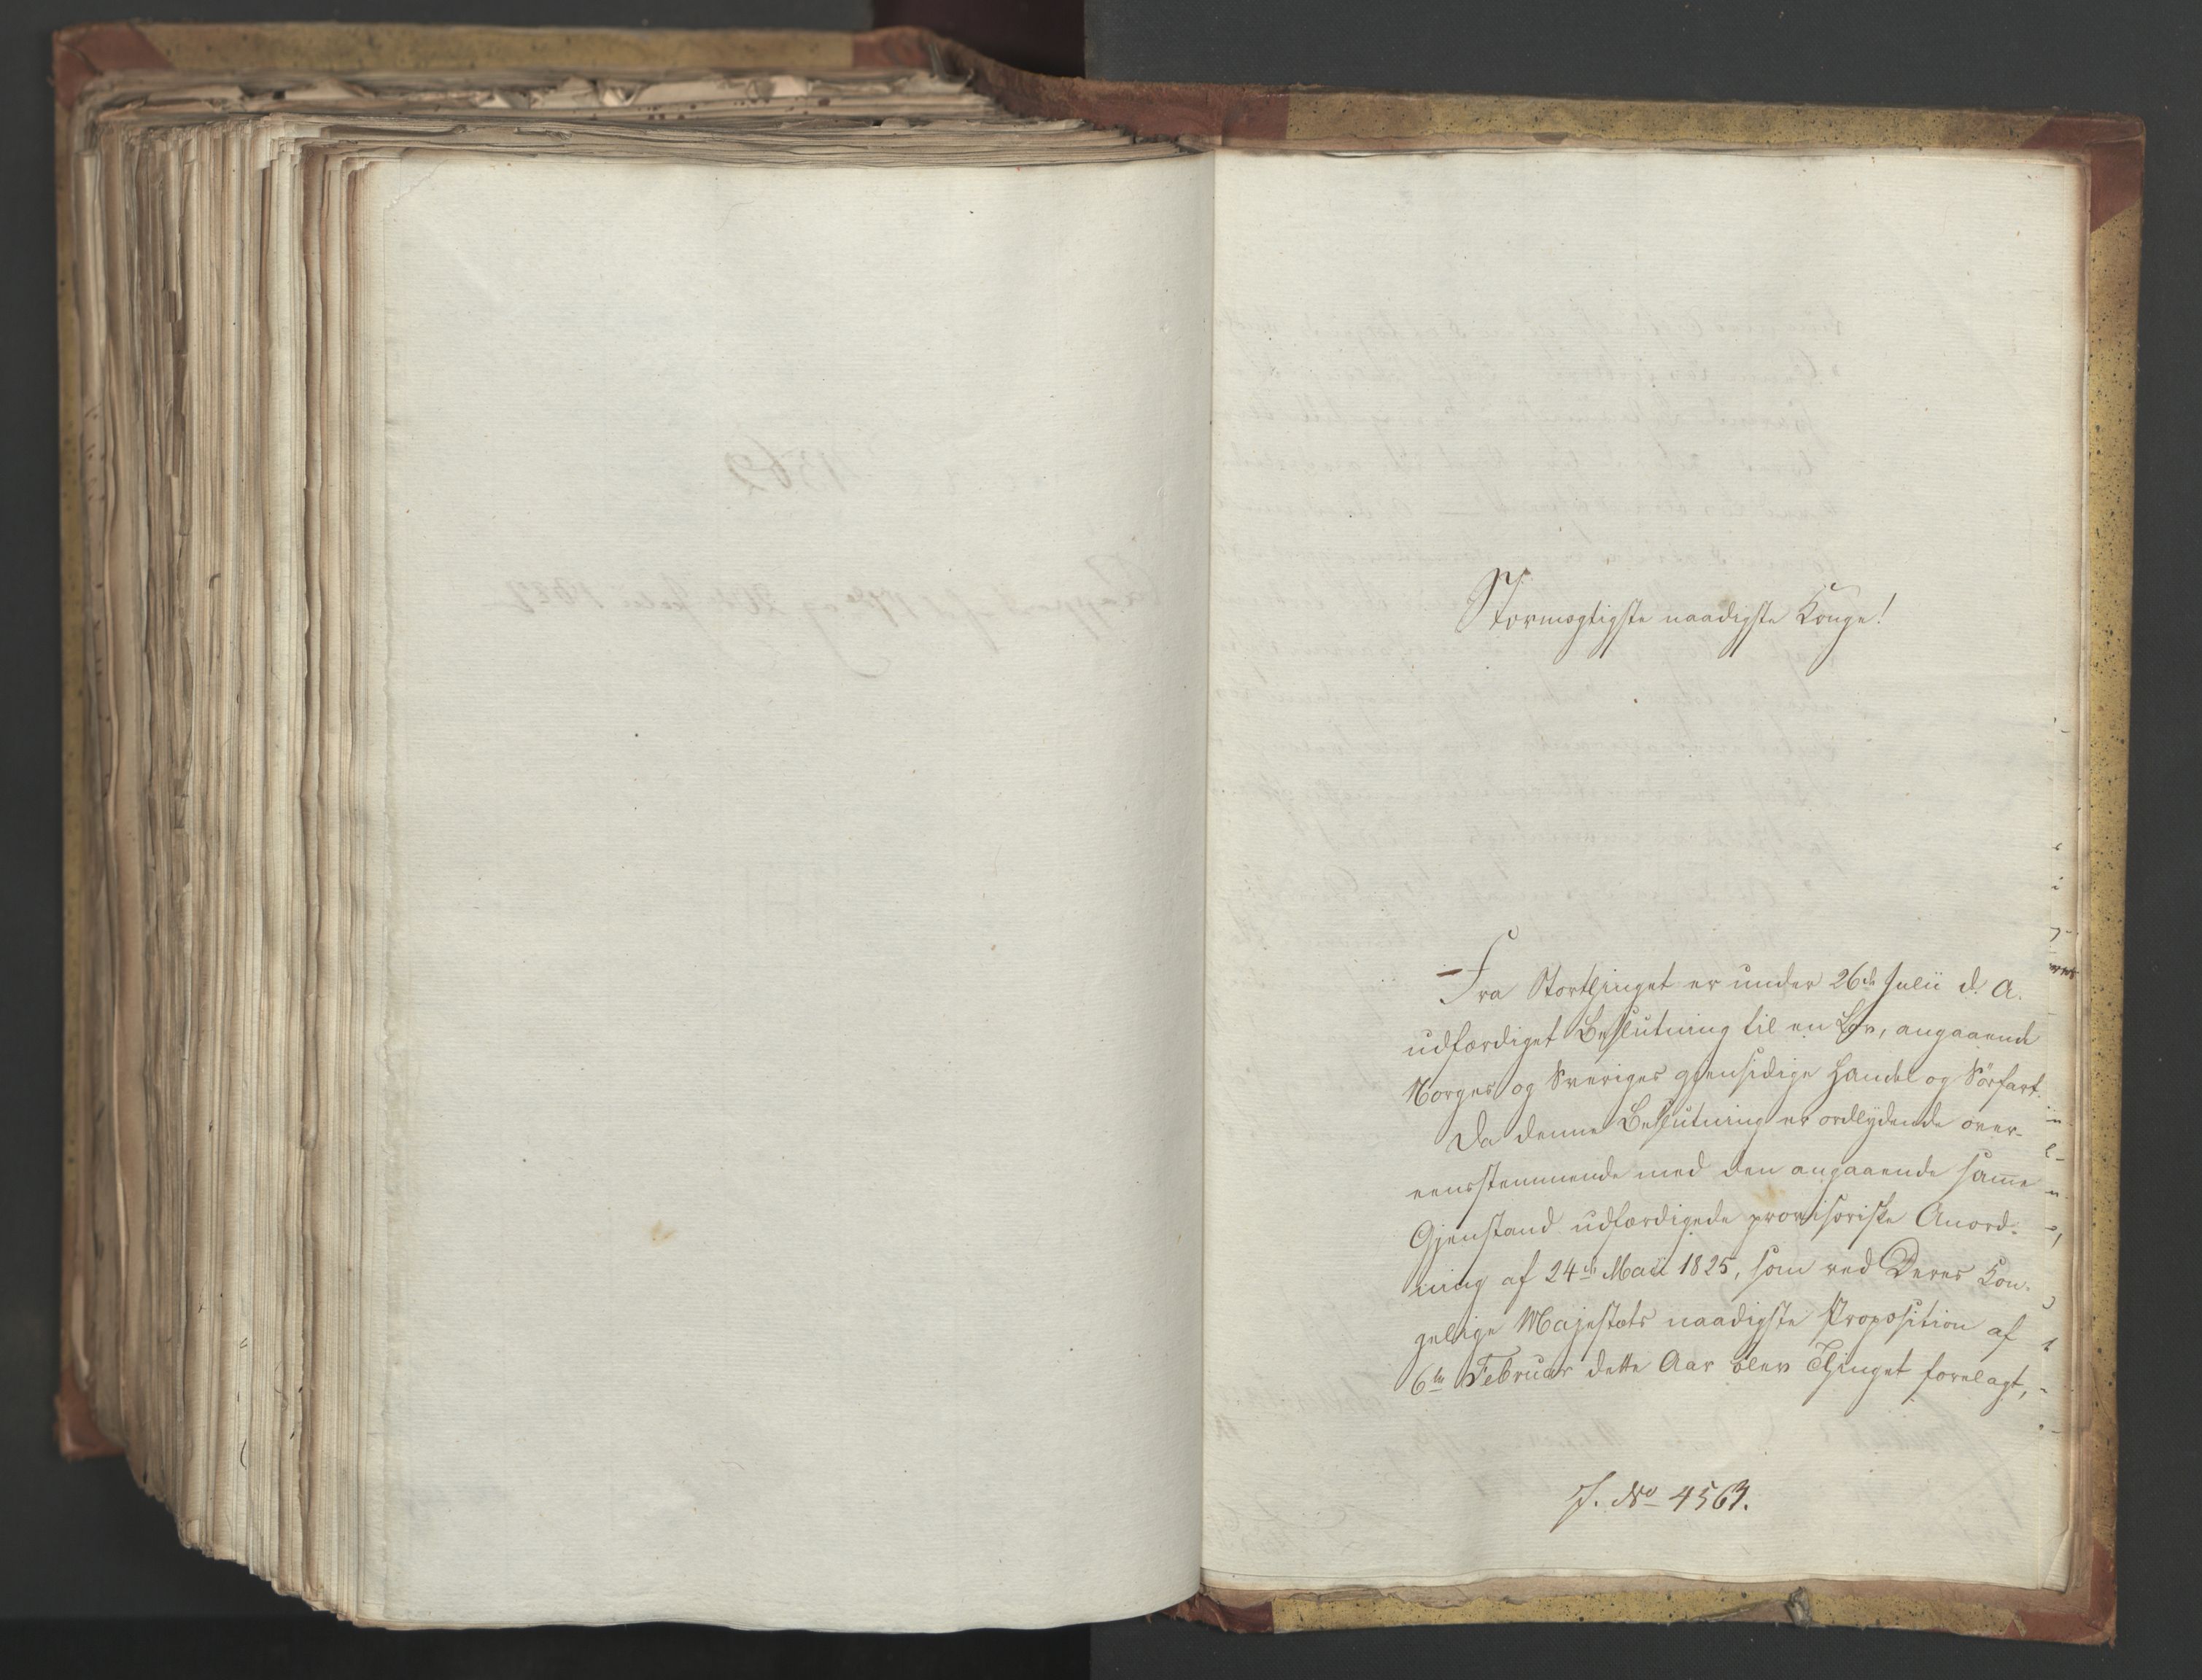 Stormægtigste naadigste Konge!
Fra Storthinget er under 26de Julii d. A.
udfærdiget Beslutning til en Lov, angaaende
Norges og Sveriges gjensidige Handel og Söefart.
Da denne Beslutning er ordlydende over-
eensstemmende med den angaaende samme
Gjenstand udfærdigede provisoriske Anord-
ning af 24de Maii 1825, som ved Deres Kon-
gelige Majestæts naadigste Proposition af
6te Februar dette Aar blev Thinget forelagt,
J. No 4563.